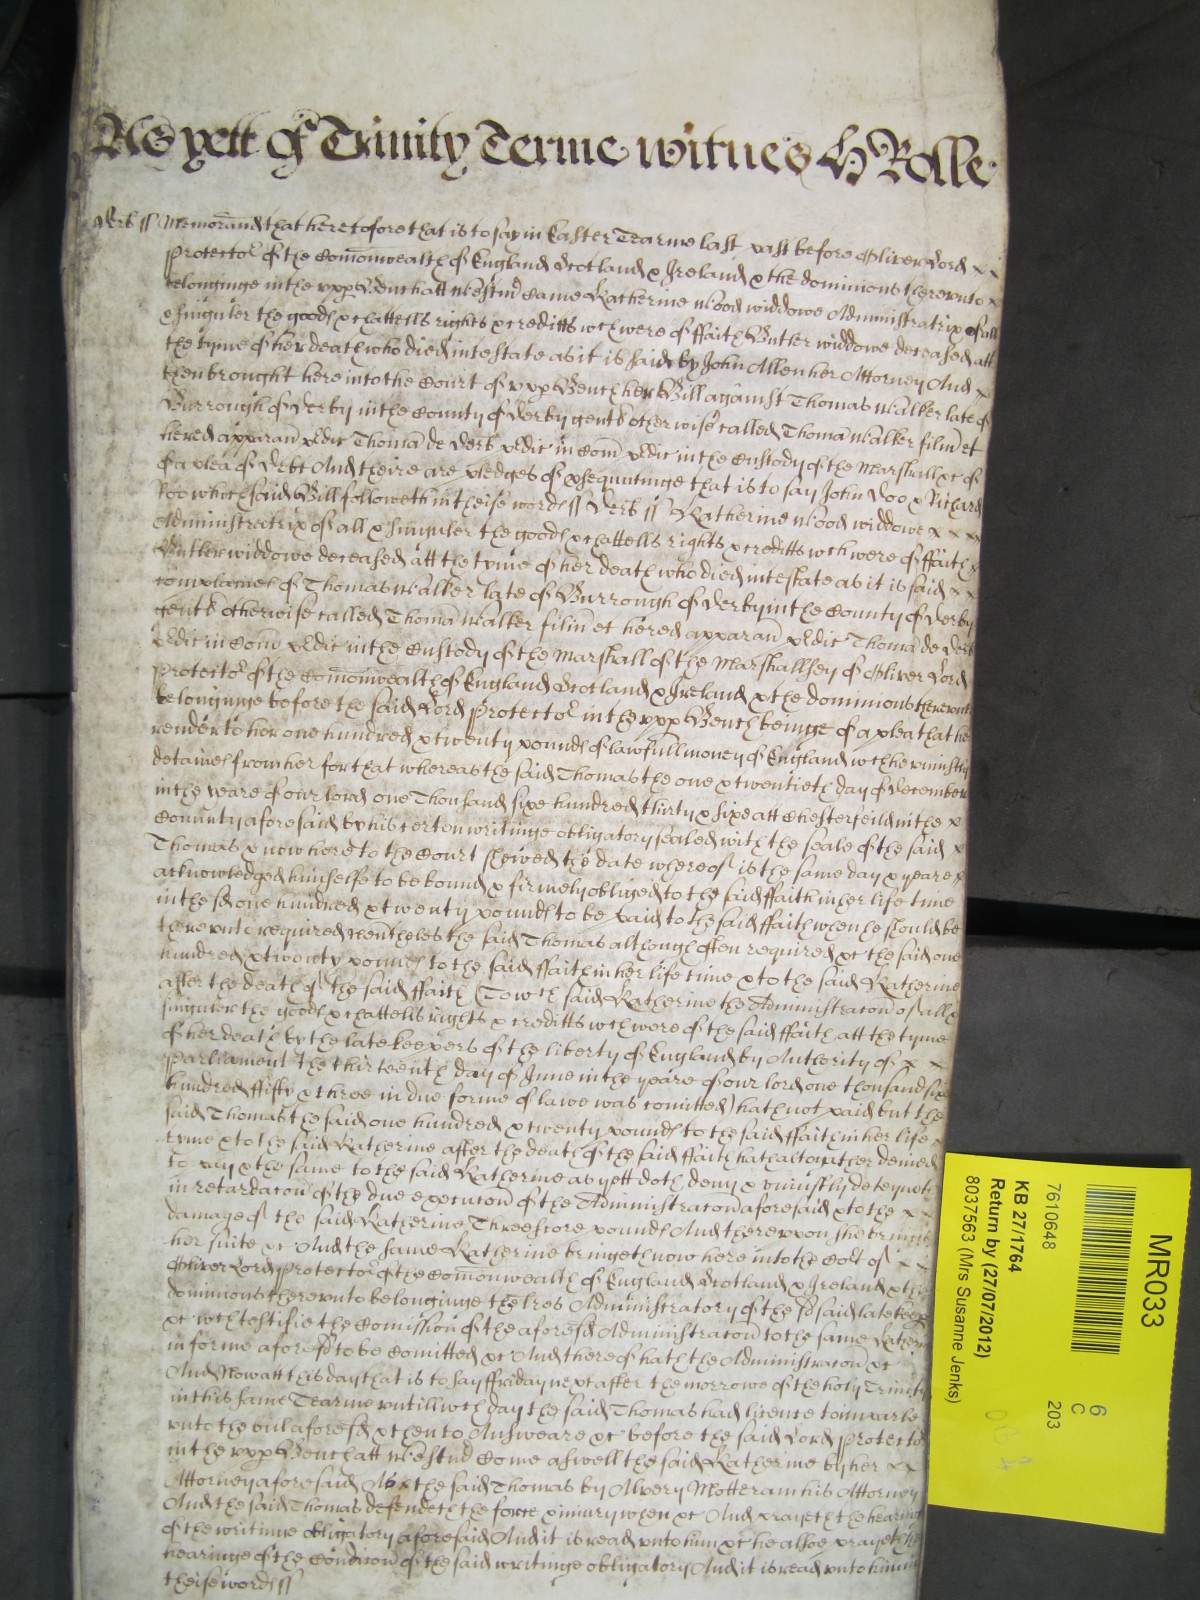 As yett of Trinity Terme witnes H Rolle
Derb ss Memorand that heretofore that is to say in Easter Tearme last past before Oliver Lord x x
Protector of the Comonwealth of England Scotland & Ireland & the dominions thereunto x
belonginge in the upp Bench att Westmr Came Katherine Wood widdowe Administratrix of all
& singuler the goods & chattells rights & creditts wch were of ffaith Butler widdowe deceased att
the tyme of her death who died intestate as it is said by John Allen her Attorney And x
then brought here into the Court of upp Bench her Bill against Thomas Walker late of
Burrough of Derby in the County of Derby gent otherwise called Thoma Walker filiu et
hered apparan pdic Thoma de Derb pdic in Com pdic in the Custody of the Marshall &c of
of a plea of Debt And theire are pledges of psequutinge that is to say John Doo & Richard
Roo which said Bill followeth in theise words ss Derb ss Katherine Wood widdowe x x x x
Administratrix of all & singuler the goods & chattells rights & creditts wch were of ffaith x
Butler widdowe deceased att the tyme of her death who died intestate as it is said x x
complaines of Thomas Walker late of Burrough of Derby in the County of Derby
gent otherwise called Thoma Walker filiu et hered apparan pdic Thoma de Derb
pdic in Com pdic in the Custody of the Marshall of the Marshallsey of Oliver Lord
Protector of the Comonwealth of England Scotland & Ireland & the dominions thereunto
belonginge before the said Lord Protector in the upp Bench beinge of a plea that he
render to her one hundred & twenty pounds of lawfull money of England wch he uniustly
detaines from her for that whereas the said Thomas the one & twentieth day of December
in the yeare of our lord one Thousand sixe hundred thirty & sixe att Chesterfeild in the x
County aforesaid by his certen writinge obligatory sealed with the seale of the said x
Thomas & now here to the Court shewed the date whereof is the same day & yeare x
acknowledged himselfe to be bound & firmely obliged to the said ffaith in her life time
in the sd one hundred & twenty pounds to be paid to the said ffaith when he should be
thereunto required nevertheles the said Thomas although often required &c the said one
hundred & twenty pounds to the said ffaith in her life time & to the said Katherine
after the death of the said ffaith (To wch said Katherine the Administracon of all &
singuler the goods & chattells rights & creditts wch were of the said ffaith att the tyme
of her death by the late keepers of the liberty of England by Authority of x x
parliament the thirteenth day of June in the yeare of our lord one thousand six
hundred fifty & three in due forme of lawe was comitted) hath not paid but the
said Thomas the said one hundred & twenty pounds to the said ffaith in her life x
tyme & to the said Katherine after the death of the said ffaith hath altogather denied
to pay & the same to the said Katherine as yett doth deny & uniustly deteyneth
in retardacon of the due execucon of the Administracon aforesaid & to the x x
damage of the said Katherine Threescore pounds And thereupon she brings
her suite &c And the same Katherine bringeth now here into the Cort of x x
Oliver Lord Protector of the Comonwealth of England Scotland & Ireland & the
dominions thereunto belonginge the lres Administratory of the sd said late keepers
&c wch testifie the Comission of the aforesd Administracon to the same Katherine
in forme aforesd to be Comitted &c And thereof hath the Administracon &c
And Now att this day that is to say ffriday next after the morrowe of the holy Trinity
in this same Tearme untill wch day the said Thomas had licence to imparle
unto the bill aforesd & then to Answeare &c before the said Lord Protector
in the upp Bench att Westmr Come aswell the said Katherine by her x x
Attorney aforesaid As the said Thomas by Alvery Motteram his Attorney
And the said Thomas defendeth the force & iniury when &c And prayeth the hearing
of the writinge obligatory aforesaid And it is read unto him &c he alsoe prayeth the
hearinge of the Condicon of the said writinge obligatory And it is read unto him in
theise words ss
MR033
6
C
7610648
203
KB 27/1764
Return by (27/07/2012)
8037563 (Mrs Susanne Jenks)